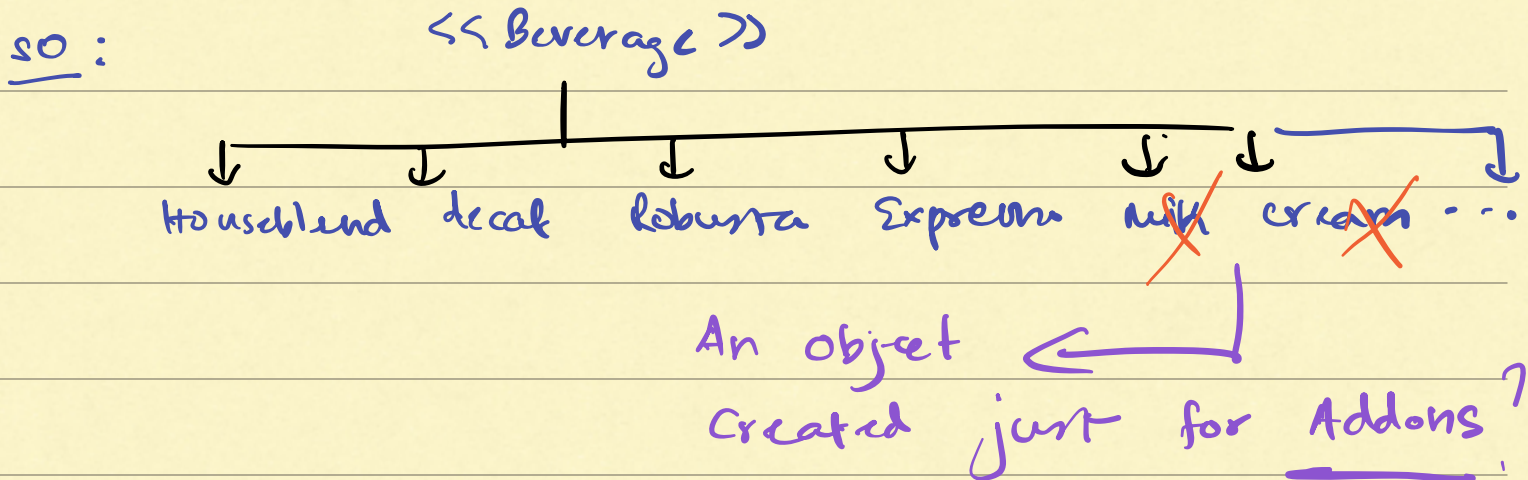 so : << Beverage >>
Houseblend decaf Robusta Expresso milk cream ...
An object
Created just for Addons?